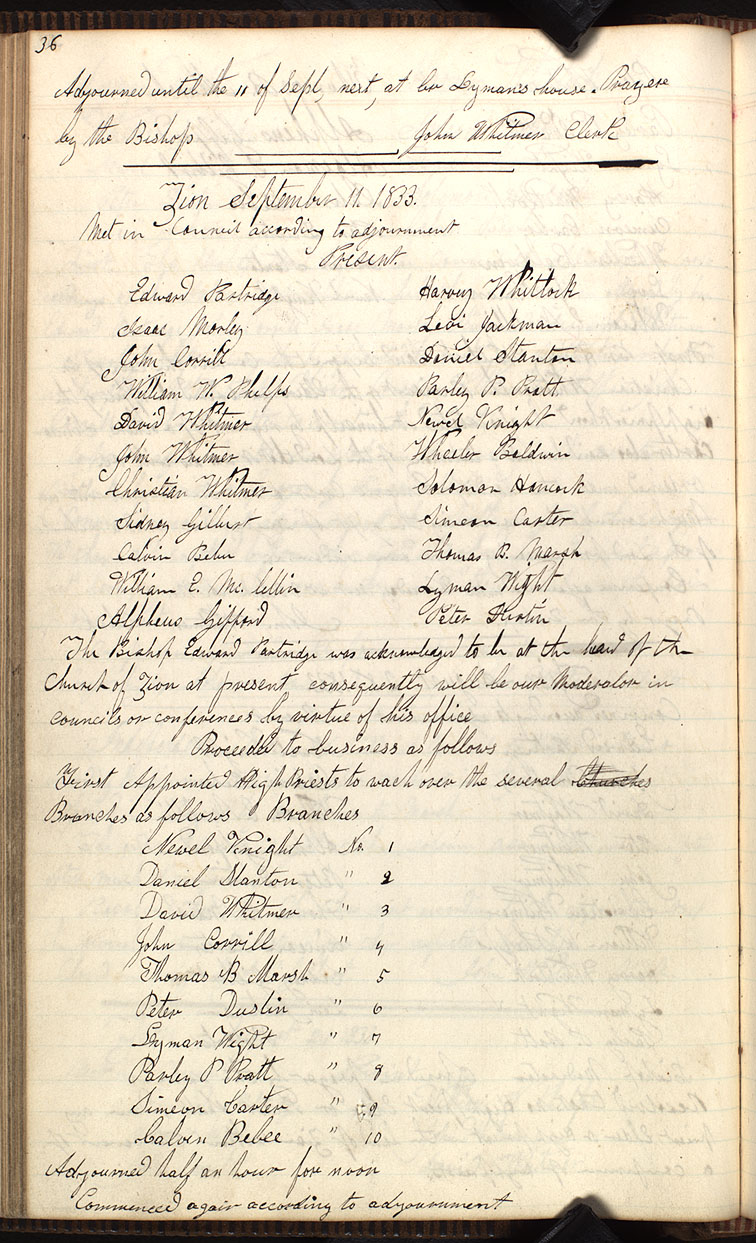 36
Adjourned until the 11 of Sept, next, at br Lyman's house. Prayer
by the Bishop John Whitmer Clerk
Zion September 11. 1833.
Met in Council according to adjournment
Present.
Edward Partridge Harvey Whitlock
Isaac Morley Levi Jackman
John Corrill Daniel Stanton
William W. Phelps Parley P. Pratt
David Whitmer Newel Knight
John Whitmer Wheeler Baldwin
Christian Whitmer Solomon Hancock
Sidney Gilbert Simeon Carter
Calvin Bebee Thomas B. Marsh
William E. Mc. lellin Lyman Wight
Alpheus Gifford Peter Dustin
The Bishop Edward Partridge was acknowledged to be at the head of the
Church of Zion at present consequently will be our Moderator in
councils or conferences by virtue of his office
Proceded to business as follows
First Appointed High Priests to wach over the several Churches
Branches as follows Branches
Newel Knight No. 1
Daniel Stanton " 2
David Whitmer " 3
John Corrill " 4
Thomas B Marsh " 5
Peter Dustin " 6
Lyman Wight " 7
Parley P Pratt " 8
Simeon Carter " 9
Calvin Bebee " 10
Adjourned half an hour for noon
Commenced again according to adjournment